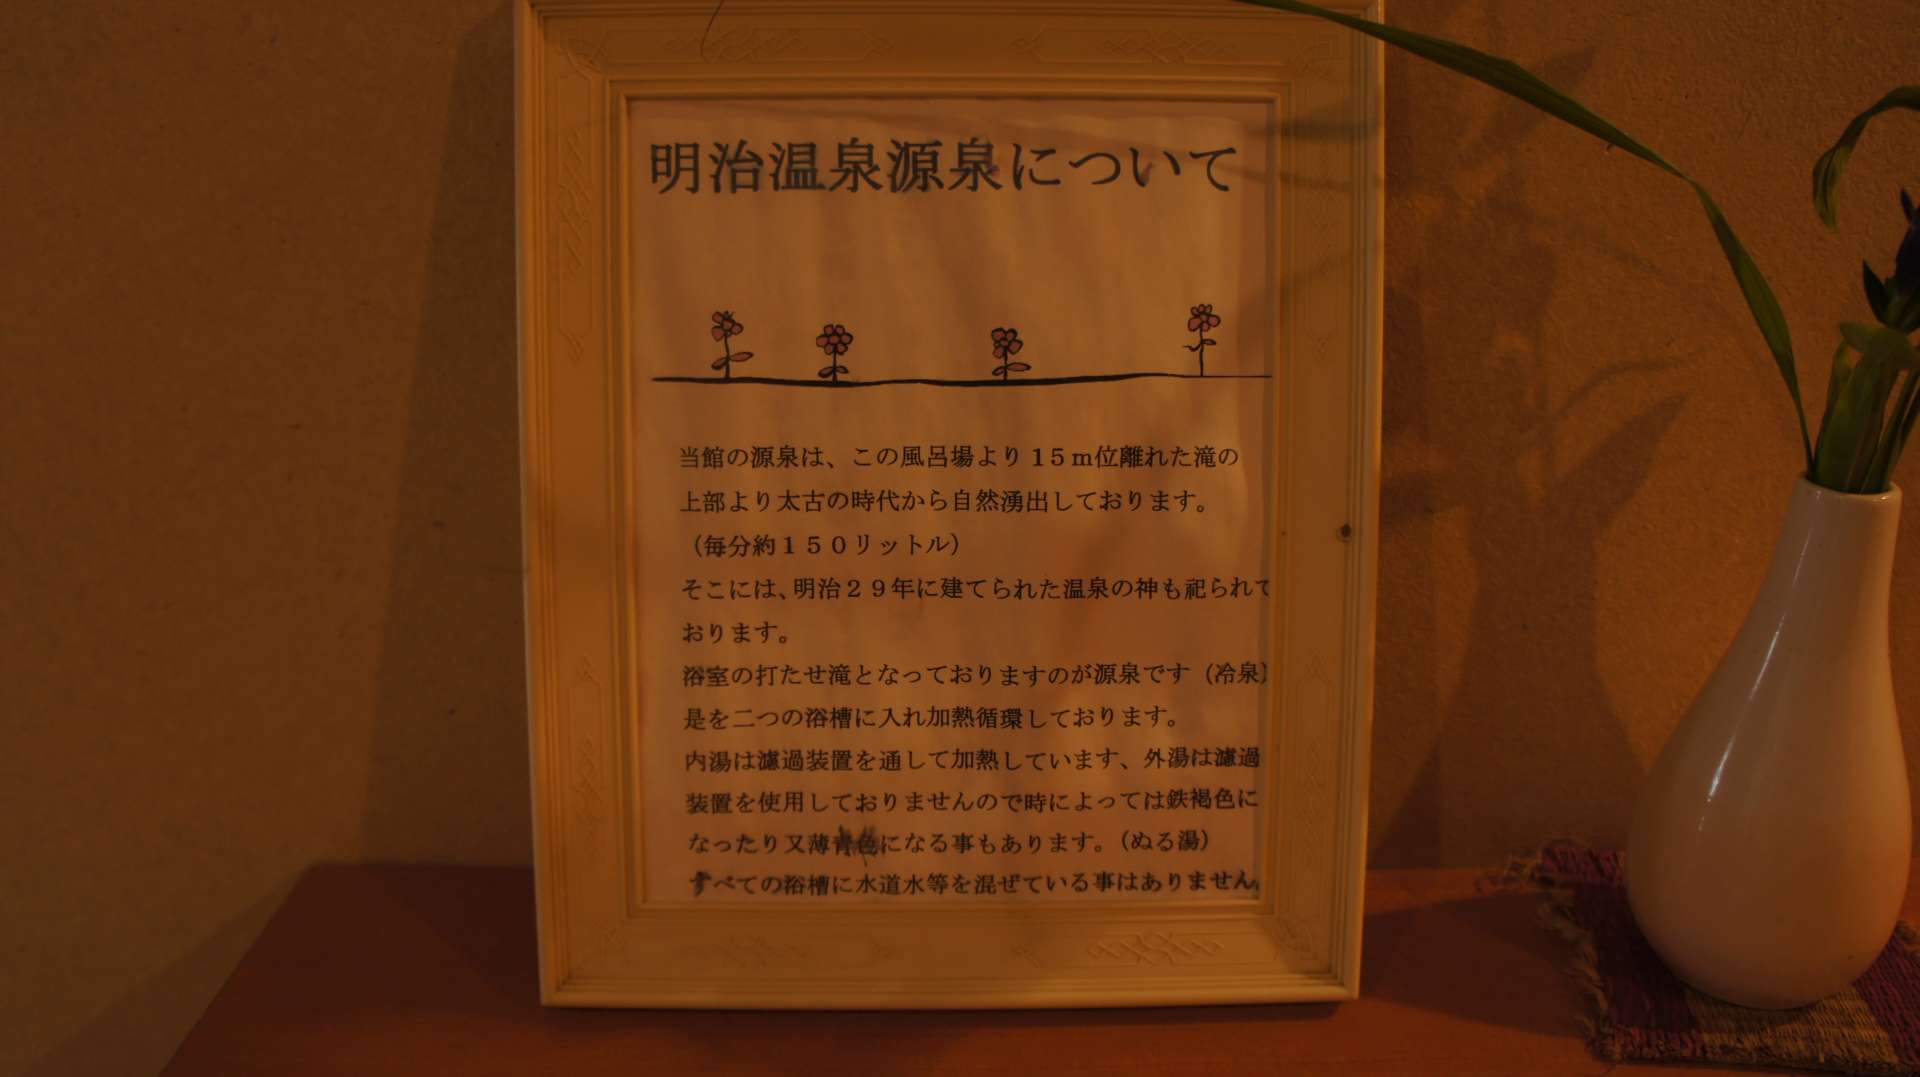 明治温泉源泉について
当館の源泉は、この風呂場より１５ｍ位離れた滝の
上部より太古の時代から自然湧出しております。
（毎分約１５０リットル）
そこには、明治２９年に建てられた温泉の神も祀られて
おります。
浴室の打たせ滝となっておりますのが源泉です（冷泉）
是を二つの浴槽に入れ加熱循環しております。
内湯は濾過装置を通して加熱しています、外湯は濾過
装置を使用しておりませんので時によっては鉄褐色に
なったり又薄青色になる事もあります。（ぬる湯）
すべての浴槽に水道水等を混ぜている事はありません。